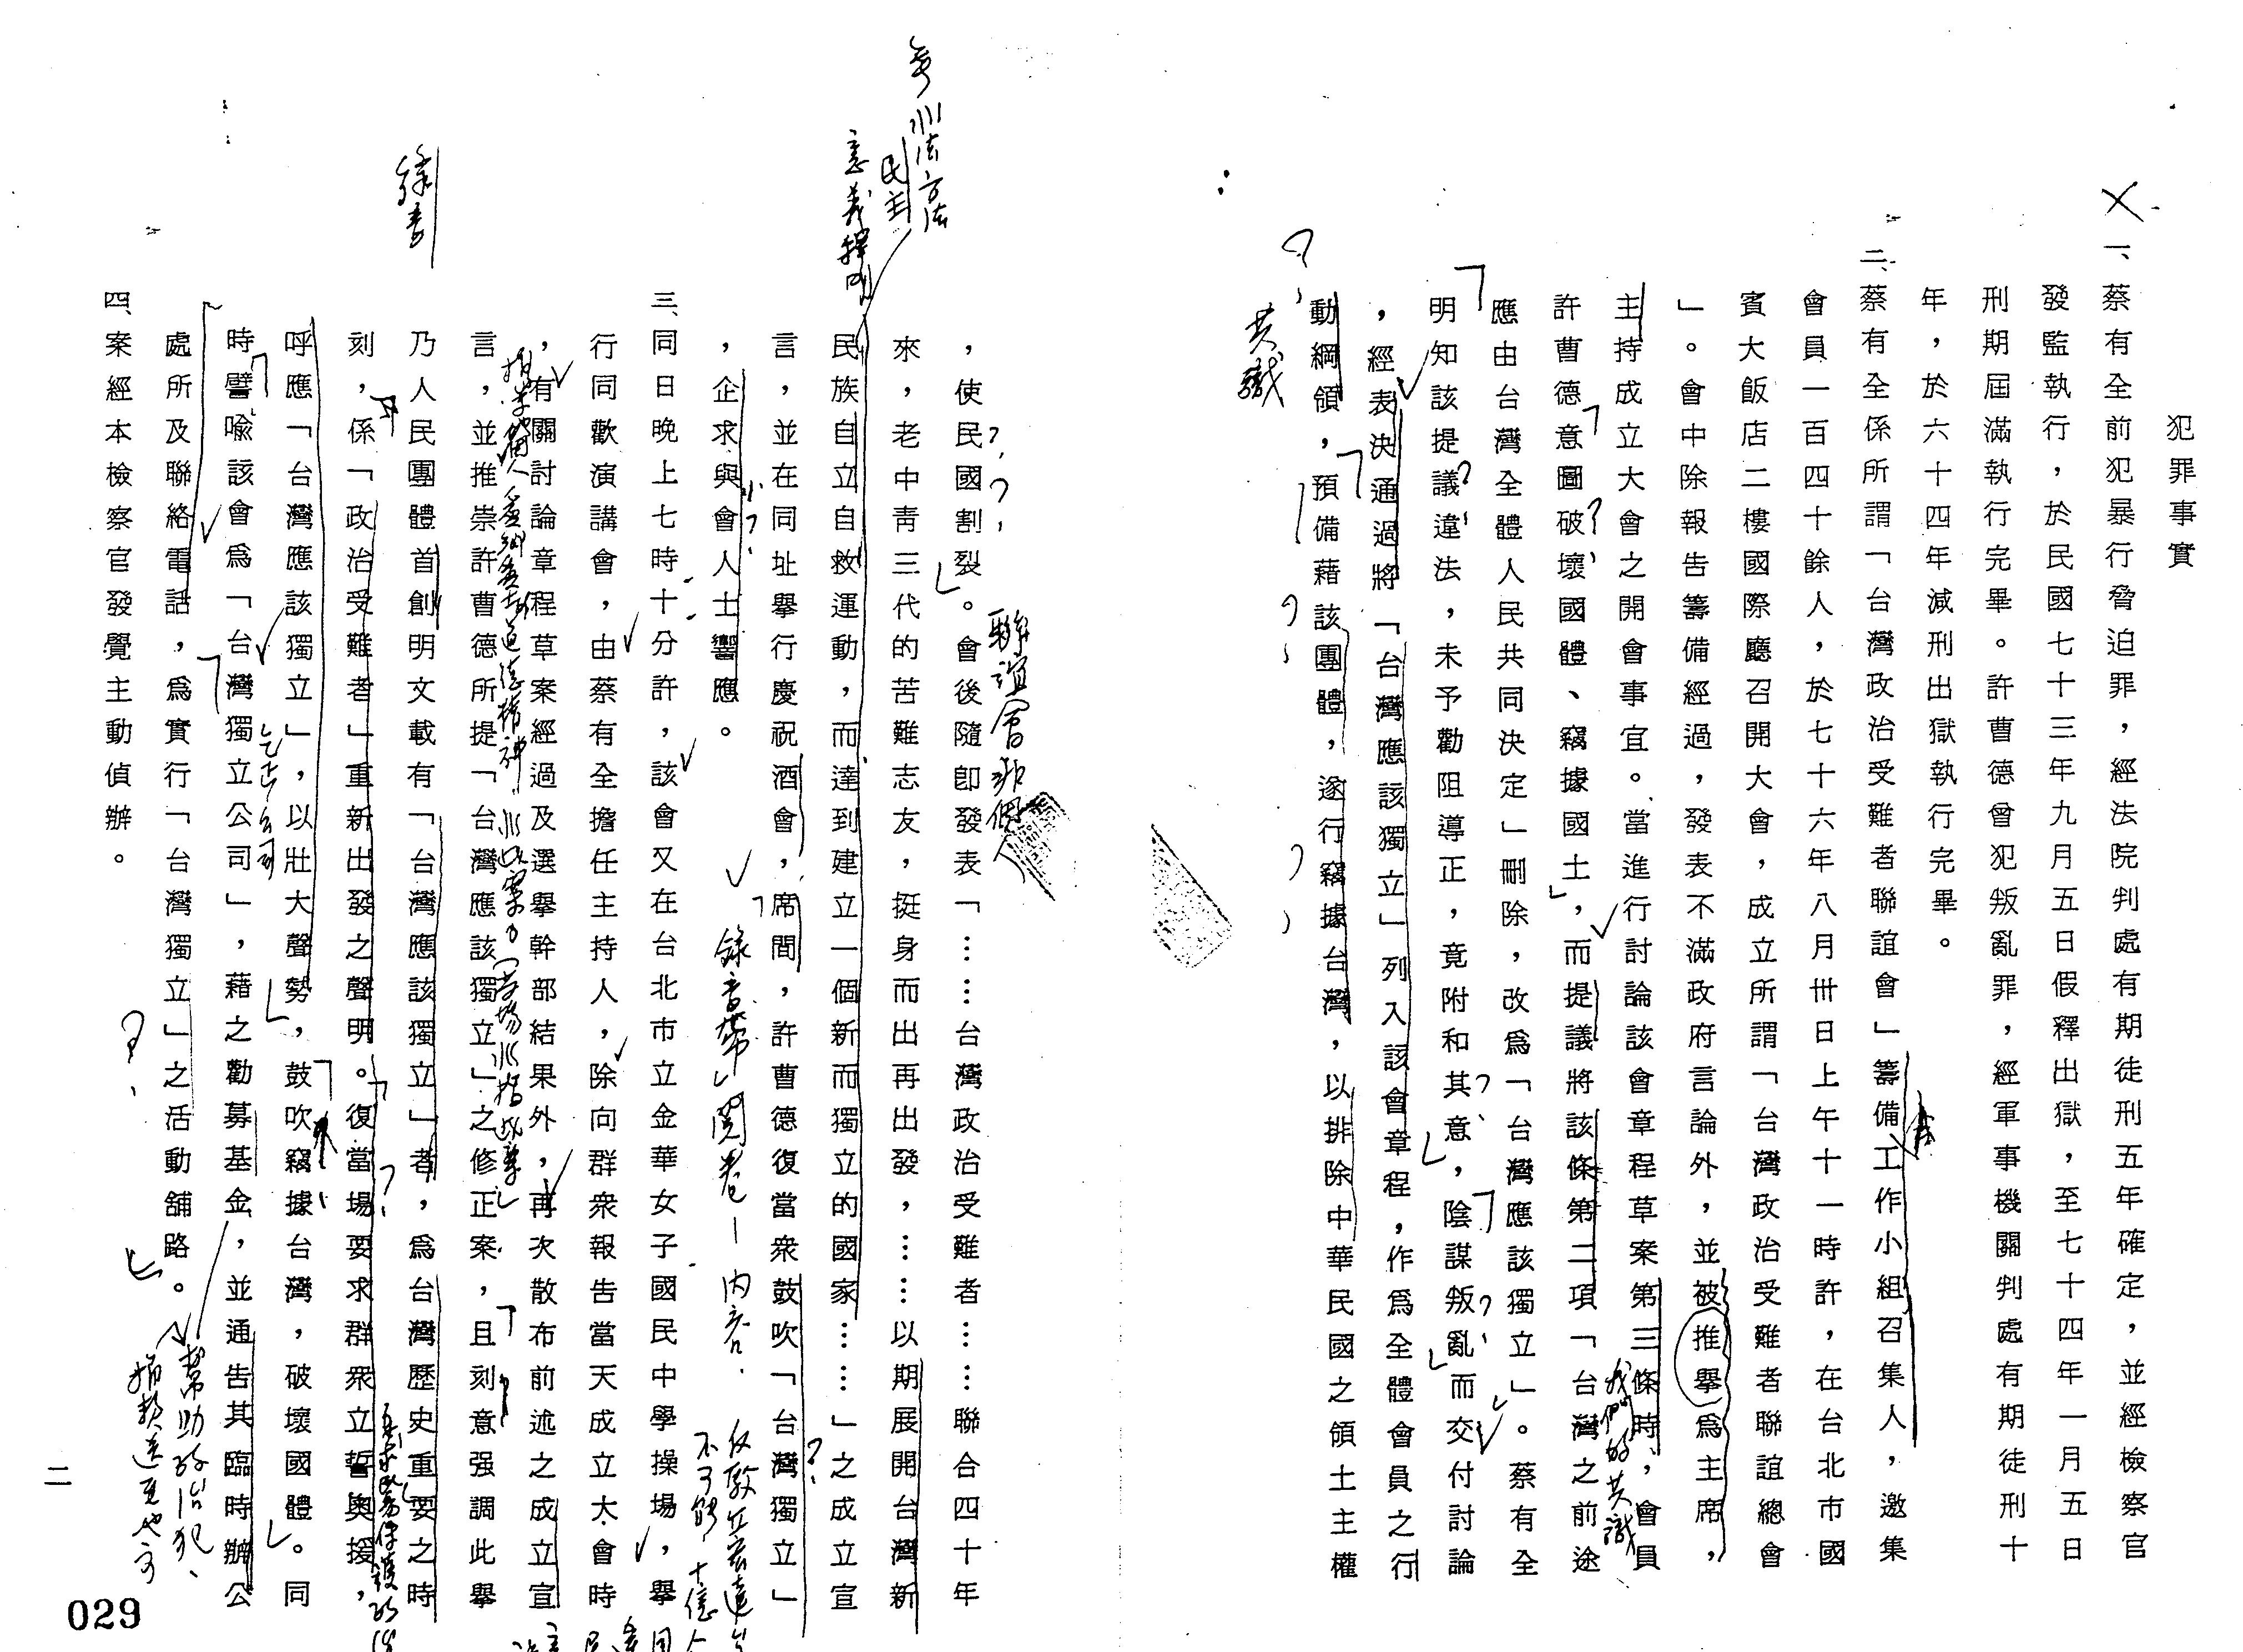 犯罪事實
一、蔡有全前犯暴行脅迫罪，經法院判處有期徒刑五年確定，並經檢察官
發監執行，於民國七十三年九月五日假釋出獄，至七十四年一月五日
刑期屆滿執行完畢。許曹德曾犯叛亂罪，經軍事機關判處有期徒刑十
年，於六十四年減刑出獄執行完畢。
二、蔡有全係所謂「台灣政治受難者聯誼會」籌備工作小組召集人，邀集
會員一百四十餘人，於七十六年八月卅日上午十一時許，在台北市國
賓大飯店二樓國際廳召開大會，成立所謂「台灣政治受難者聯誼總會
」。會中除報告籌備經過，發表不滿政府言論外，並被推舉爲主席，
主持成立大會之開會事宜。當進行討論該會章程草案第三條時，會員
許曹德意圖破壞國體、竊據國土，而提議將該條第二項「台灣之前途
我們的共識
應由台灣全體人民共同決定」刪除，改爲「台灣應該獨立」。蔡有全
明知該提議違法，未予勸阻導正，竟附和其意，陰謀叛亂而交付討論
，經表決通過將「台灣應該獨立」列入該會章程，作爲全體會員之行
動綱領，預備藉該團體，遂行竊據台灣，以排除中華民國之領土主權
共識
，使民國割裂。會後隨卽發表「……台灣政治受難者……聯合四十年
聯誼會非個人
來，老中靑三代的苦難志友，挺身而出再出發，……以期展開台灣新
民族自立自救運動，而達到建立一個新而獨立的國家……」之成立宣
方法
民主
意義
言，並在同址舉行慶祝酒會，席間，許曹德復當衆鼓吹「台灣獨立」
，企求與會人士響應。
錄音帶 閱卷 — 內容
三、同日晚上七時十分許，該會又在台北市立金華女子國民中學操場，舉
行同歡演講會，由蔡有全擔任主持人，除向群衆報告當天成立大會時
，有關討論章程草案經過及選舉幹部結果外，再次散布前述之成立宣
言，並推崇許曹德所提「台灣應該獨立」之修正案，且刻意强調此舉
乃人民團體首創明文載有「台灣應該獨立」者，爲台灣歷史重要之時
刻，係「政治受難者」重新出發之聲明。復當場要求群衆立誓與援，
呼應「台灣應該獨立」，以壯大聲勢，鼓吹竊據台灣，破壞國體。同
時譬喩該會爲「台灣獨立公司」，藉之勸募基金，並通告其臨時辦公
處所及聯絡電話，爲實行「台灣獨立」之活動舖路。
幫助政治犯、
四、案經本檢察官發覺主動偵辦。
二
029